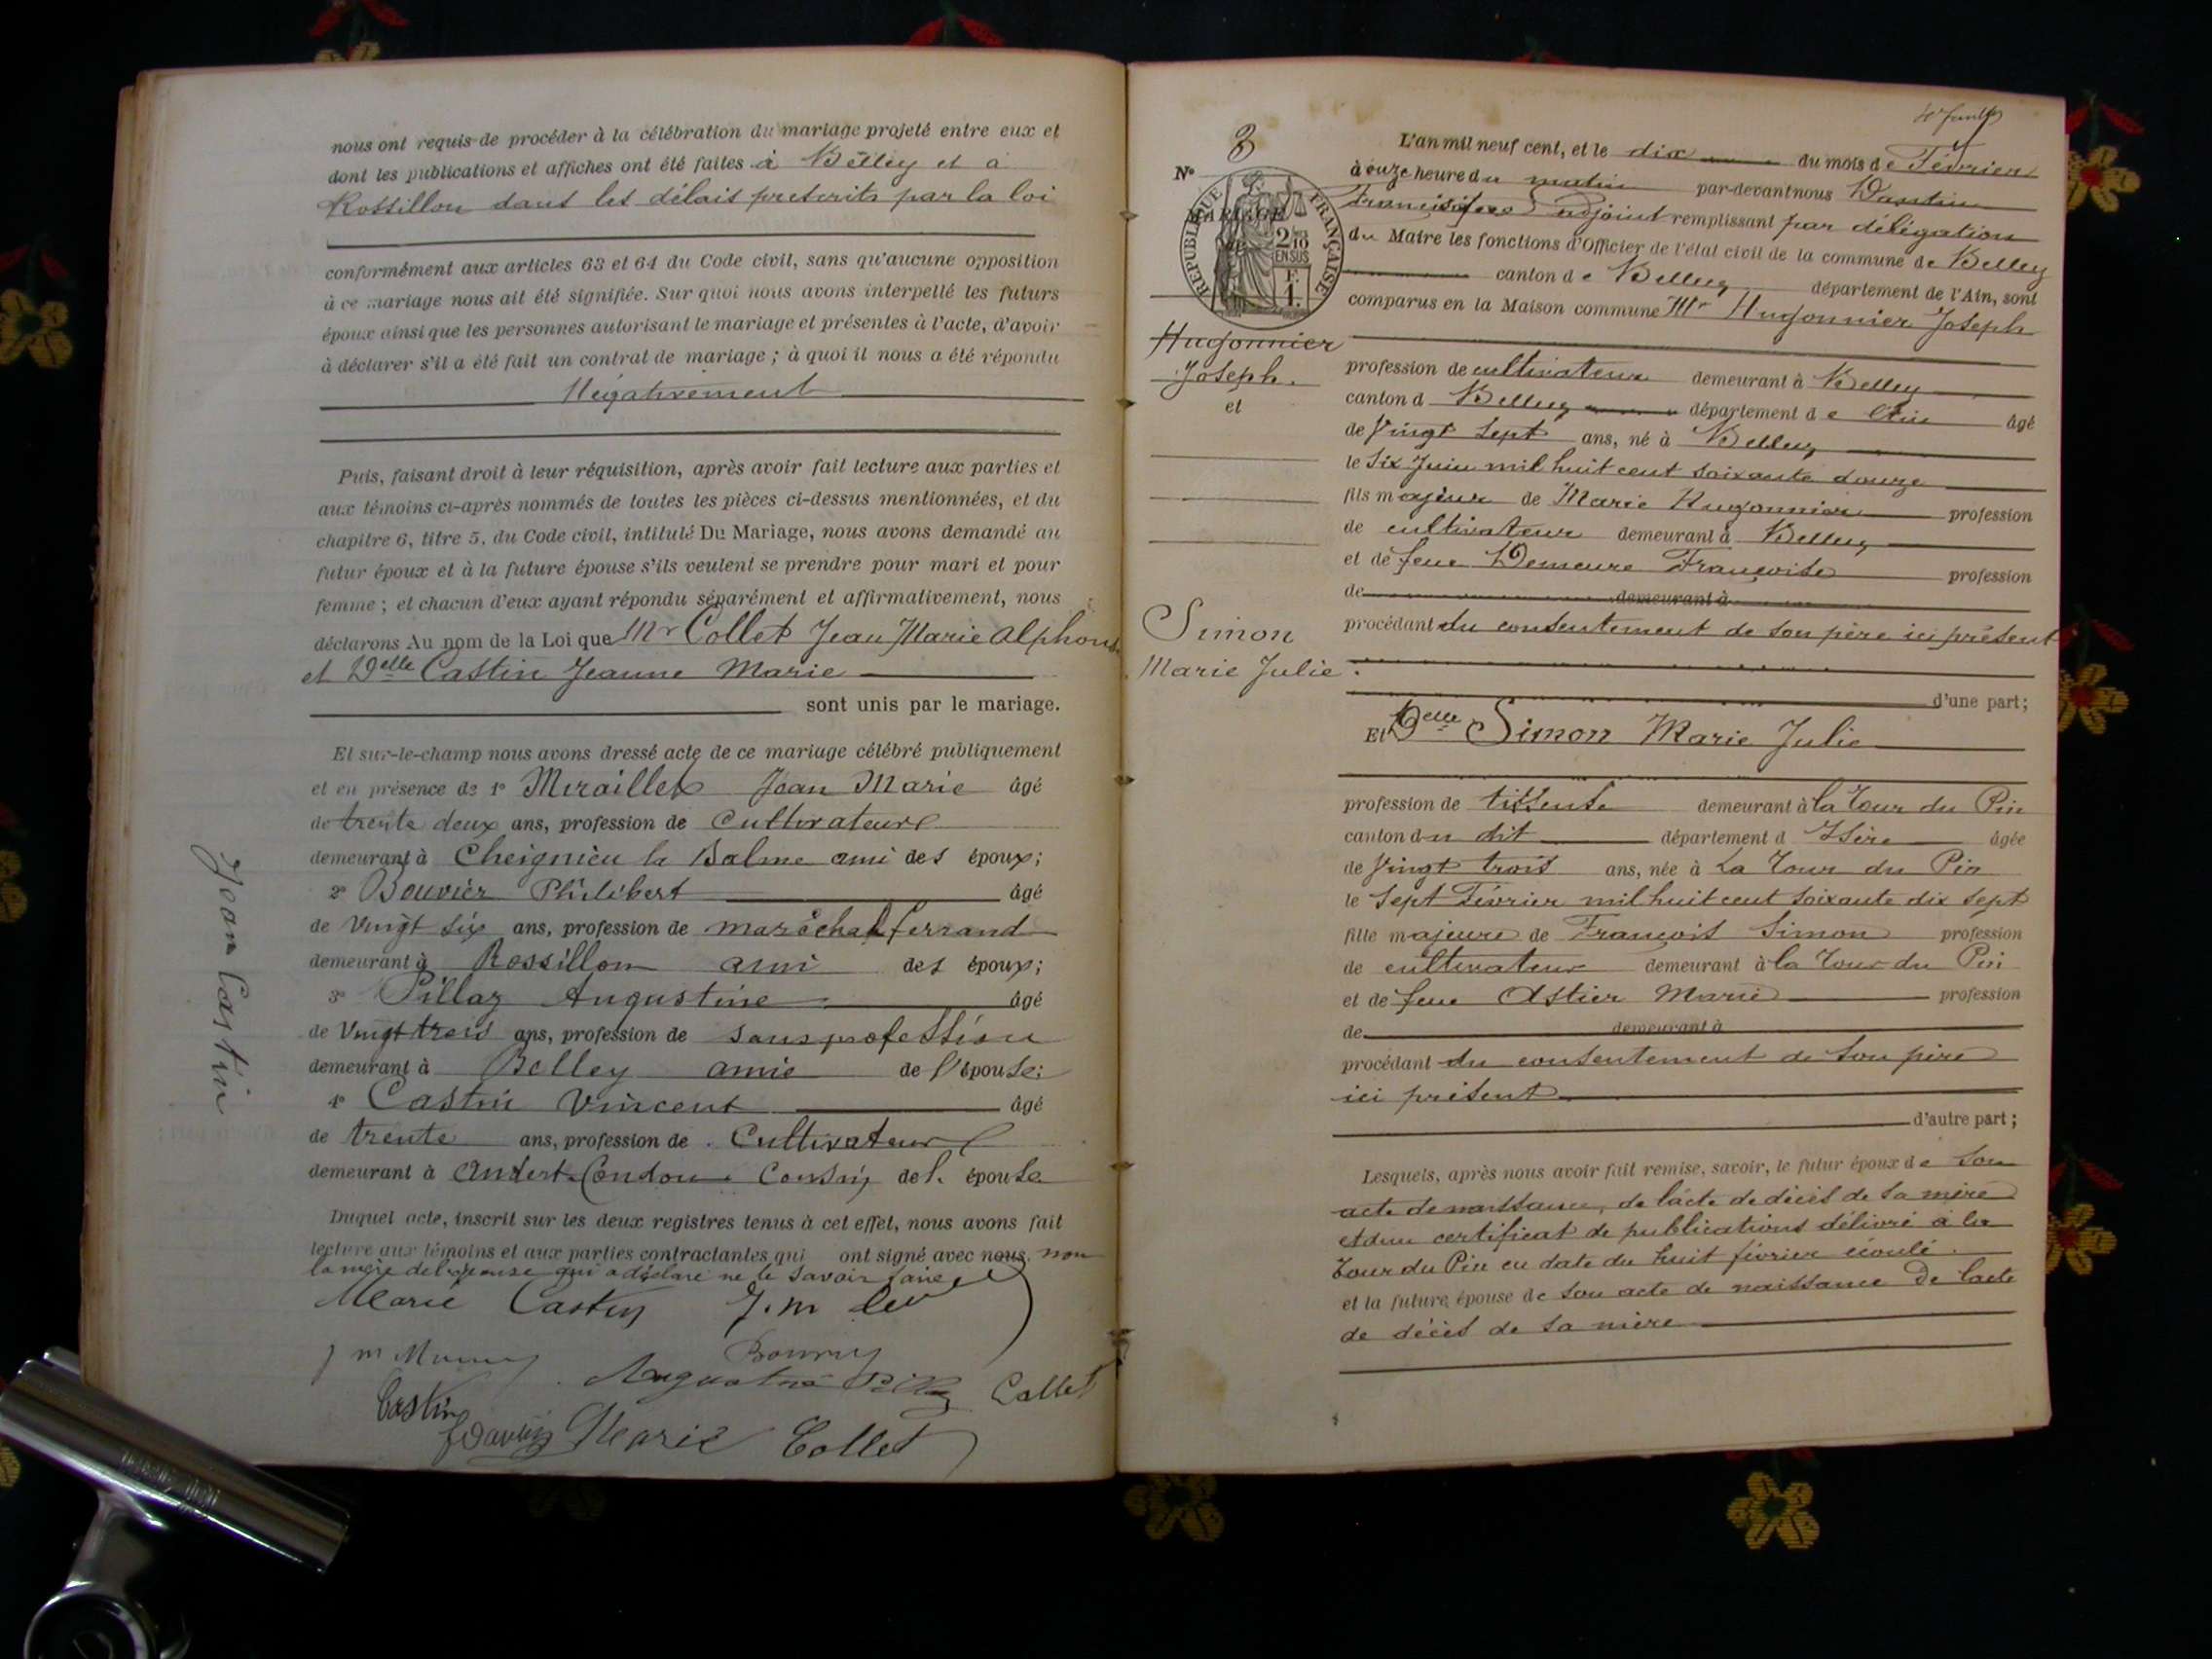 nous ont requis de procéder à la célébration du mariage projeté entre eux et
dont les publications et affiches ont été faites à Belley et à
Rossillon dans les délais prescrits par la loi
conformément aux articles 63 et 64 du Code civil, sans qu'aucune opposition
à ce mariage nous ait été signifiée. Sur quoi nous avons interpellé les futurs
époux ainsi que les personnes autorisant le mariage et présentes à l'acte, d'avoir
à déclarer s'il a été fait un contrat de mariage ; à quoi il nous a été répondu
Négativement
Puis, faisant droit à leur réquisition, après avoir fait lecture aux parties et
aux témoins ci-après nommés de toutes les pièces ci-dessus mentionnées, et du
chapitre 6, titre 5, du Code civil, intitulé Du Mariage, nous avons demandé au
futur époux et à la future épouse s'ils veulent se prendre pour mari et pour
femme ; et chacun d'eux ayant répondu séparément et affirmativement, nous
déclarons Au nom de la Loi que Mr Collet Jean Marie Alphonse
et Delle Castin Jeanne Marie
sont unis par le mariage.
Et sur-le-champ nous avons dressé acte de ce mariage célébré publiquement
et en présence de 1° Miraillet Jean Marie âgé
de trente deux ans, profession de Cultivateur
demeurant à Cheignieu la Balme ami des époux;
2° Bouvier Philibert âgé
de Vingt six ans, profession de maréchal ferrand
demeurant à Rossillon ami des époux;
3° Pillaz Augustine âgé
de Vingt trois ans, profession de sans profession
demeurant à Belley amie de l'épouse;
4° Castin Vincent âgé
de trente ans, profession de Cultivateur
demeurant à Andert-Condon Cousin de l. épouse
Duquel acte, inscrit sur les deux registres tenus à cet effet, nous avons fait
lecture aux témoins et aux parties contractantes qui ont signé avec nous, non
la mère de l'épouse qui a déclaré ne le savoir faire
Marie Castin J. m
Augustine Pillaz Collet
Castin
Marie Collet
Jean Castin
N° 8
MARIAGE
RÉPUBLIQUE FRANÇAISE
2/10
EN SUS
F.
1.
Hugonnier
Joseph.
et
Simon
Marie Julie.
L'an mil neuf cent, et le dix du mois de Février
à onze heure du matin par-devant nous Dantin
adjoint remplissant par délégation
du Maire les fonctions d'Officier de l'état civil de la commune de Belley
canton de Belley département de l'Ain, sont
comparus en la Maison commune Mr Hugonnier Joseph
profession de cultivateur demeurant à Belley
canton d Belley département de l'Ain âgé
de Vingt sept ans, né à Belley
le six Juin mil huit cent soixante douze
fils majeur de Marie Hugonnier profession
de cultivateur demeurant à Belley
et de feue Demeure Françoise profession
de demeurant à
procédant du consentement de son père ici présent
d'une part;
Et Delle Simon Marie Julie
profession de tisseuse demeurant à la Tour du Pin
canton du dit département d Isère âgée
de Vingt trois ans, née à La Tour du Pin
le sept Février mil huit cent soixante dix sept
fille majeure de François Simon profession
de cultivateur demeurant à la Tour du Pin
et de feue Astier Marie profession
de demeurant à
procédant du consentement de son père
ici présent
d'autre part;
Lesquels, après nous avoir fait remise, savoir, le futur époux de son
acte de naissance, de l'acte de décès de sa mère
et d'un certificat de publications délivré à la
Tour du Pin en date du huit février écoulé.
et la future épouse de son acte de naissance De l'acte
de décès de sa mère